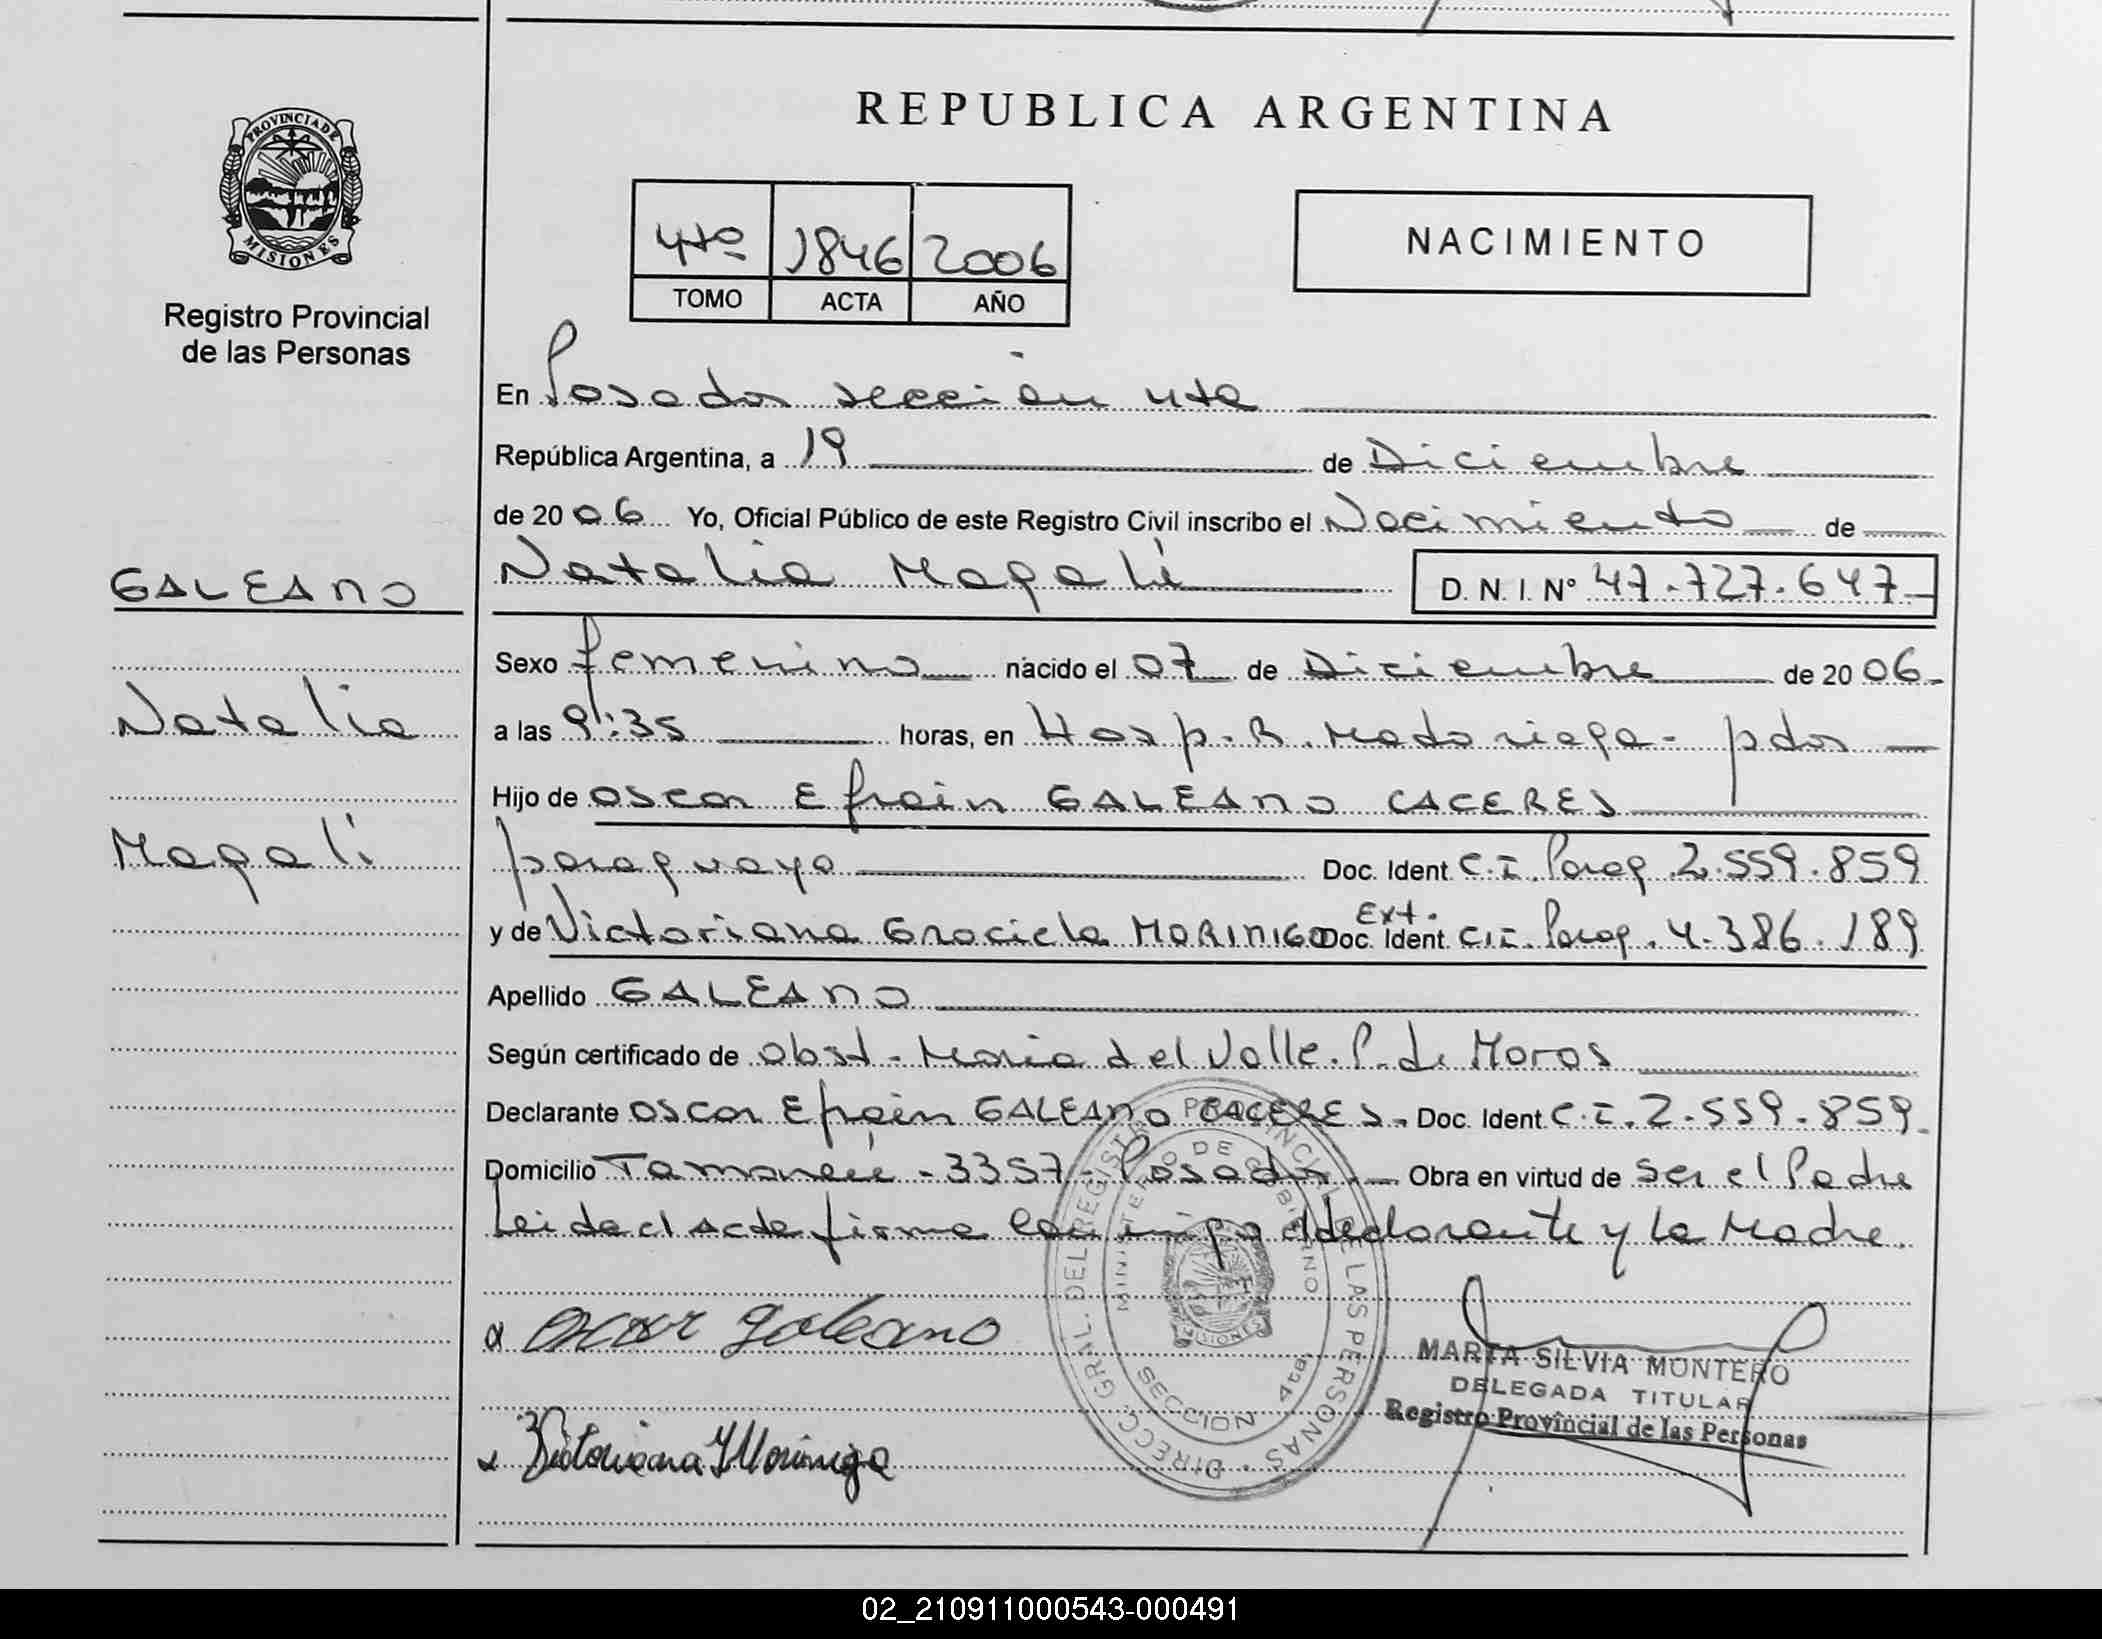 REPUBLICA ARGENTINA
PROVINCIA DE MISIONES
Registro Provincial
de las Personas
4to 1846 2006
TOMO ACTA AÑO
NACIMIENTO
En Posadas sección 4ta
República Argentina, a 19 de Diciembre
de 2006 Yo, Oficial Público de este Registro Civil inscribo el Nacimiento de
Natalia Magalí D. N. I. Nº 47.727.647
GALEANO
Natalia
Magalí
Sexo femenino nacido el 07 de Diciembre de 2006.
a las 9:35 horas, en Hosp. R. Madariaga - pdas
Hijo de Oscar Efrain GALEANO CACERES
paraguaya Doc. Ident. C.I. Parag. 2.559.859
Ext.
y de Victoriana Graciela MORINIGO Doc. Ident. C.I. Parag. 4.386.189
Apellido GALEANO
Según certificado de Obst. Maria del Valle P. de Moros
Declarante Oscar Efrain GALEANO CACERES. Doc. Ident. C.I. 2.559.859.
Domicilio 3357 - Posadas. Obra en virtud de ser el Padre
Leida el Acta firma conmigo el declarante y la Madre.
Oscar Galeano
Victoriana Morinigo
DIRECC. GRAL. DEL REGISTRO PROVINCIAL DE LAS PERSONAS
MINISTERIO DE GOBIERNO
MISIONES
SECCION 4ta.
MARTA SILVIA MONTERO
DELEGADA TITULAR
Registro Provincial de las Personas
02_210911000543-000491